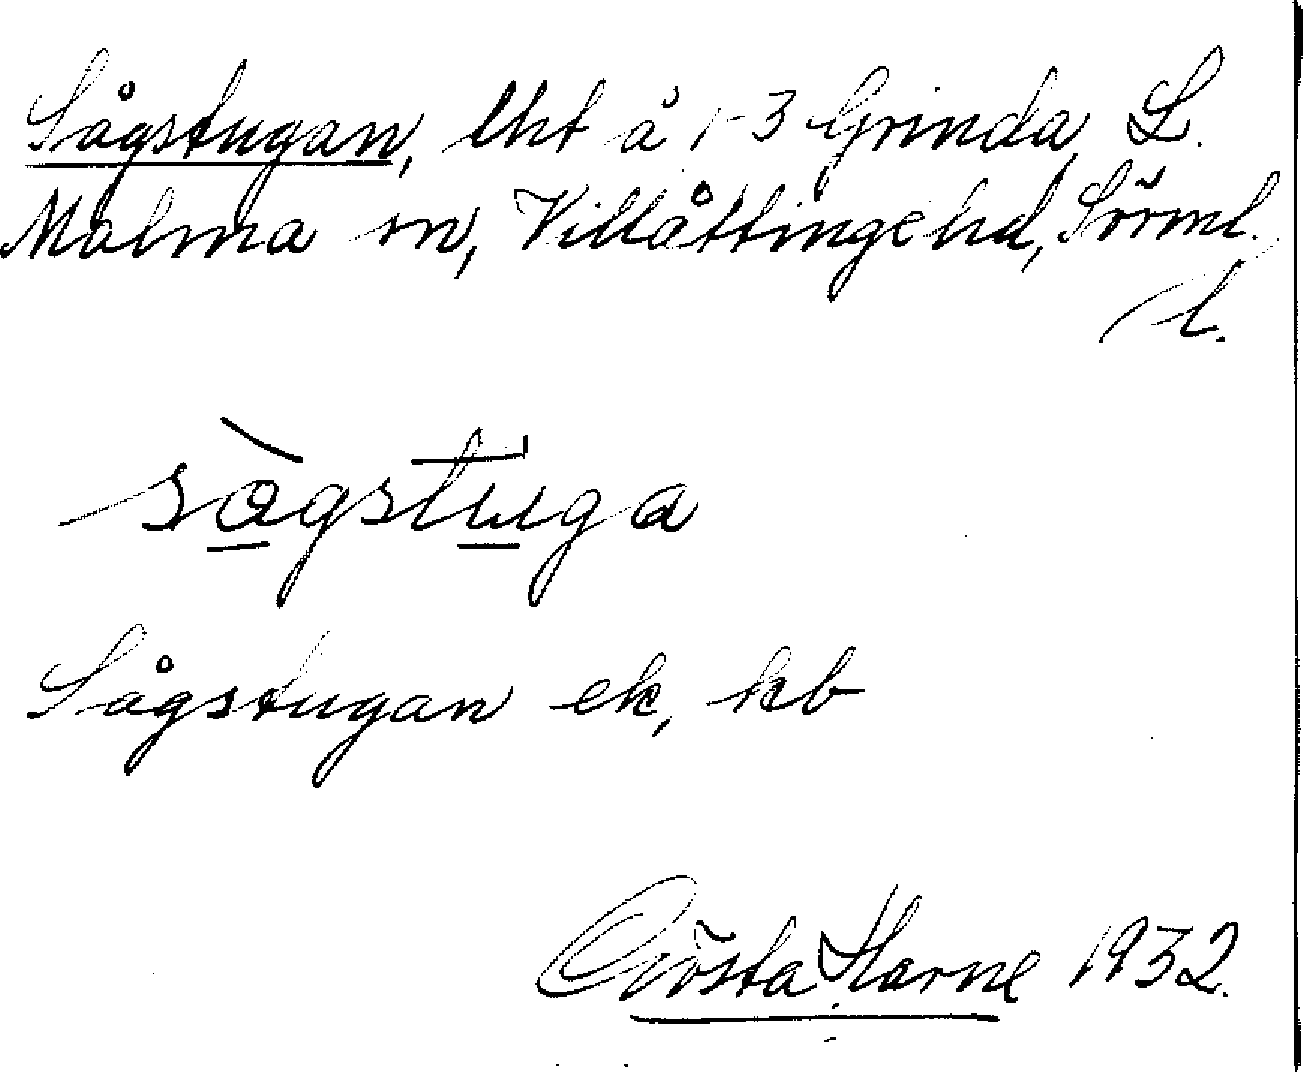 Sågstugan, lht å 1-3 Grinda, L.
Malma sn, Villåttinge hd, Sörml.
l.
sàgstuga
Sågstugan ek, kb
Gösta Harne 1932.